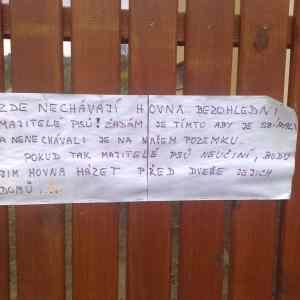 ZDE NECHÁVAJÍ HOVNA BEZOHLEDNÍ
MAJITELÉ PSŮ! ŽÁDÁM JE TÍMTO ABY JE SBÍRALI
A NENECHÁVALI JE NA NAŠEM POZEMKU.
POKUD TAK MAJITELÉ PSŮ NEUČINÍ, BUDU
JIM HOVNA HÁZET PŘED DVEŘE JEJICH
DOMŮ.